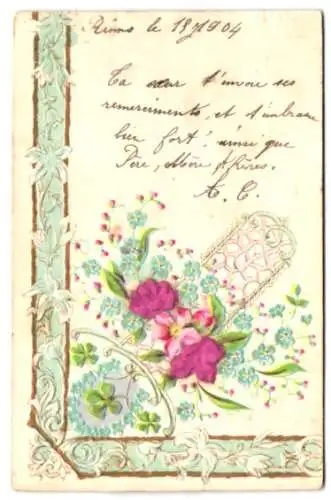 Reims le 18/7 04
Ta sœur t'envoie ses
remerciments, et t'embrasse
bien fort ainsi que
Père, Mère & frères.
A. C.